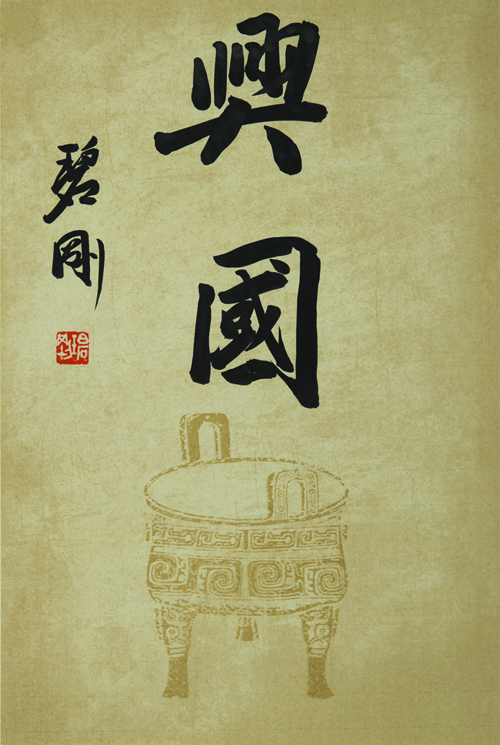 興國
碧剛